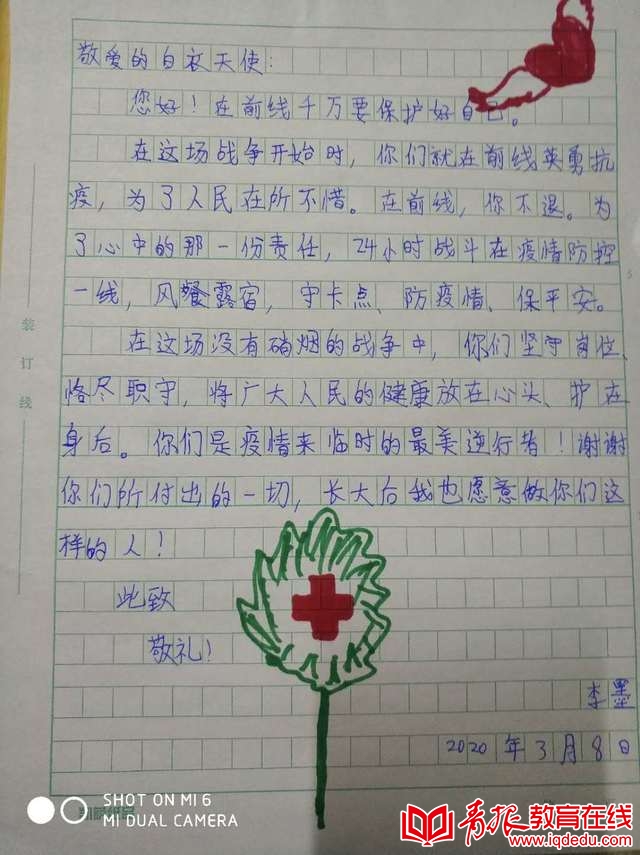 敬爱的白衣天使:
您好!在前线千万要保护好自己。
在这场战争开始时,你们就在前线英勇抗
疫,为了人民在所不惜。在前线,你不退。为
了心中的那一份责任,24小时战斗在疫情防控
一线,风餐露宿,守卡点、防疫情、保平安。
在这场没有硝烟的战争中,你们坚守岗位、
恪尽职守,将广大人民的健康放在心头、护在
身后。你们是疫情来临时的最美逆行者!谢谢
你们所付出的一切,长大后我也愿意做你们这
样的人!
此致
敬礼!
李墨
2020年3月8日
装订线
SHOT ON MI 6
MI DUAL CAMERA
青报教育在线
www.iqdedu.com